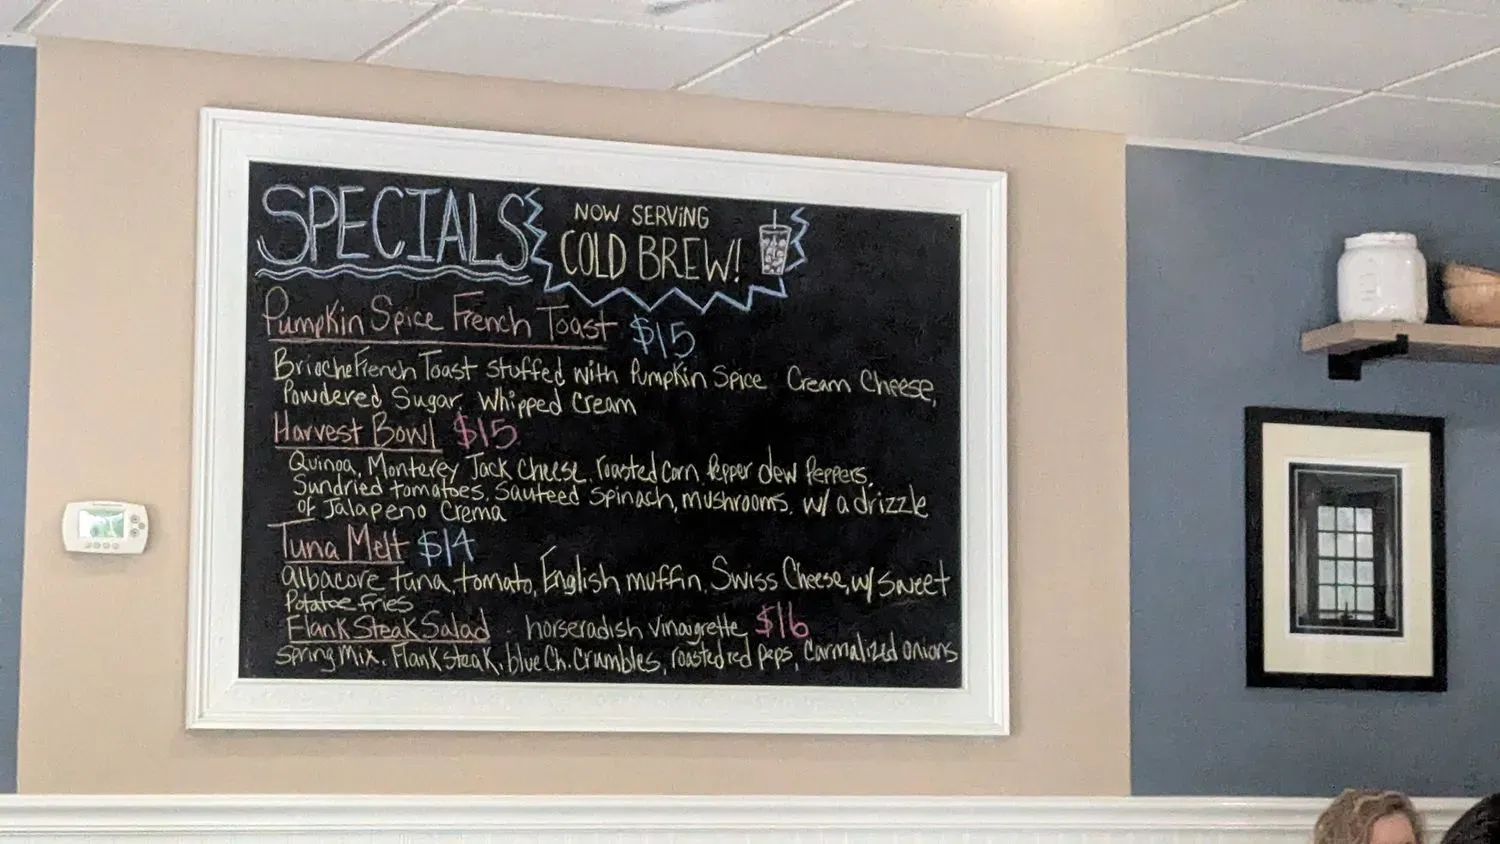 SPECIALS
NOW SERVING
COLD BREW!
Pumpkin Spice French Toast $15
Brioche French Toast Stuffed with Pumpkin Spice Cream Cheese,
Powdered Sugar, Whipped Cream
Harvest Bowl $15
Quinoa, Monterey Jack Cheese, roasted corn, Pepper dew Peppers,
Sundried tomatoes, Sauteed Spinach, mushrooms, w/ a drizzle
of Jalapeno Crema
Tuna Melt $14
albacore tuna, tomato, English muffin, Swiss Cheese, w/ Sweet
Potatoe Fries
Flank Steak Salad - horseradish vinaigrette $16
Spring Mix, Flank Steak, blue Ch. Crumbles, roasted red peps, Carmalized onions